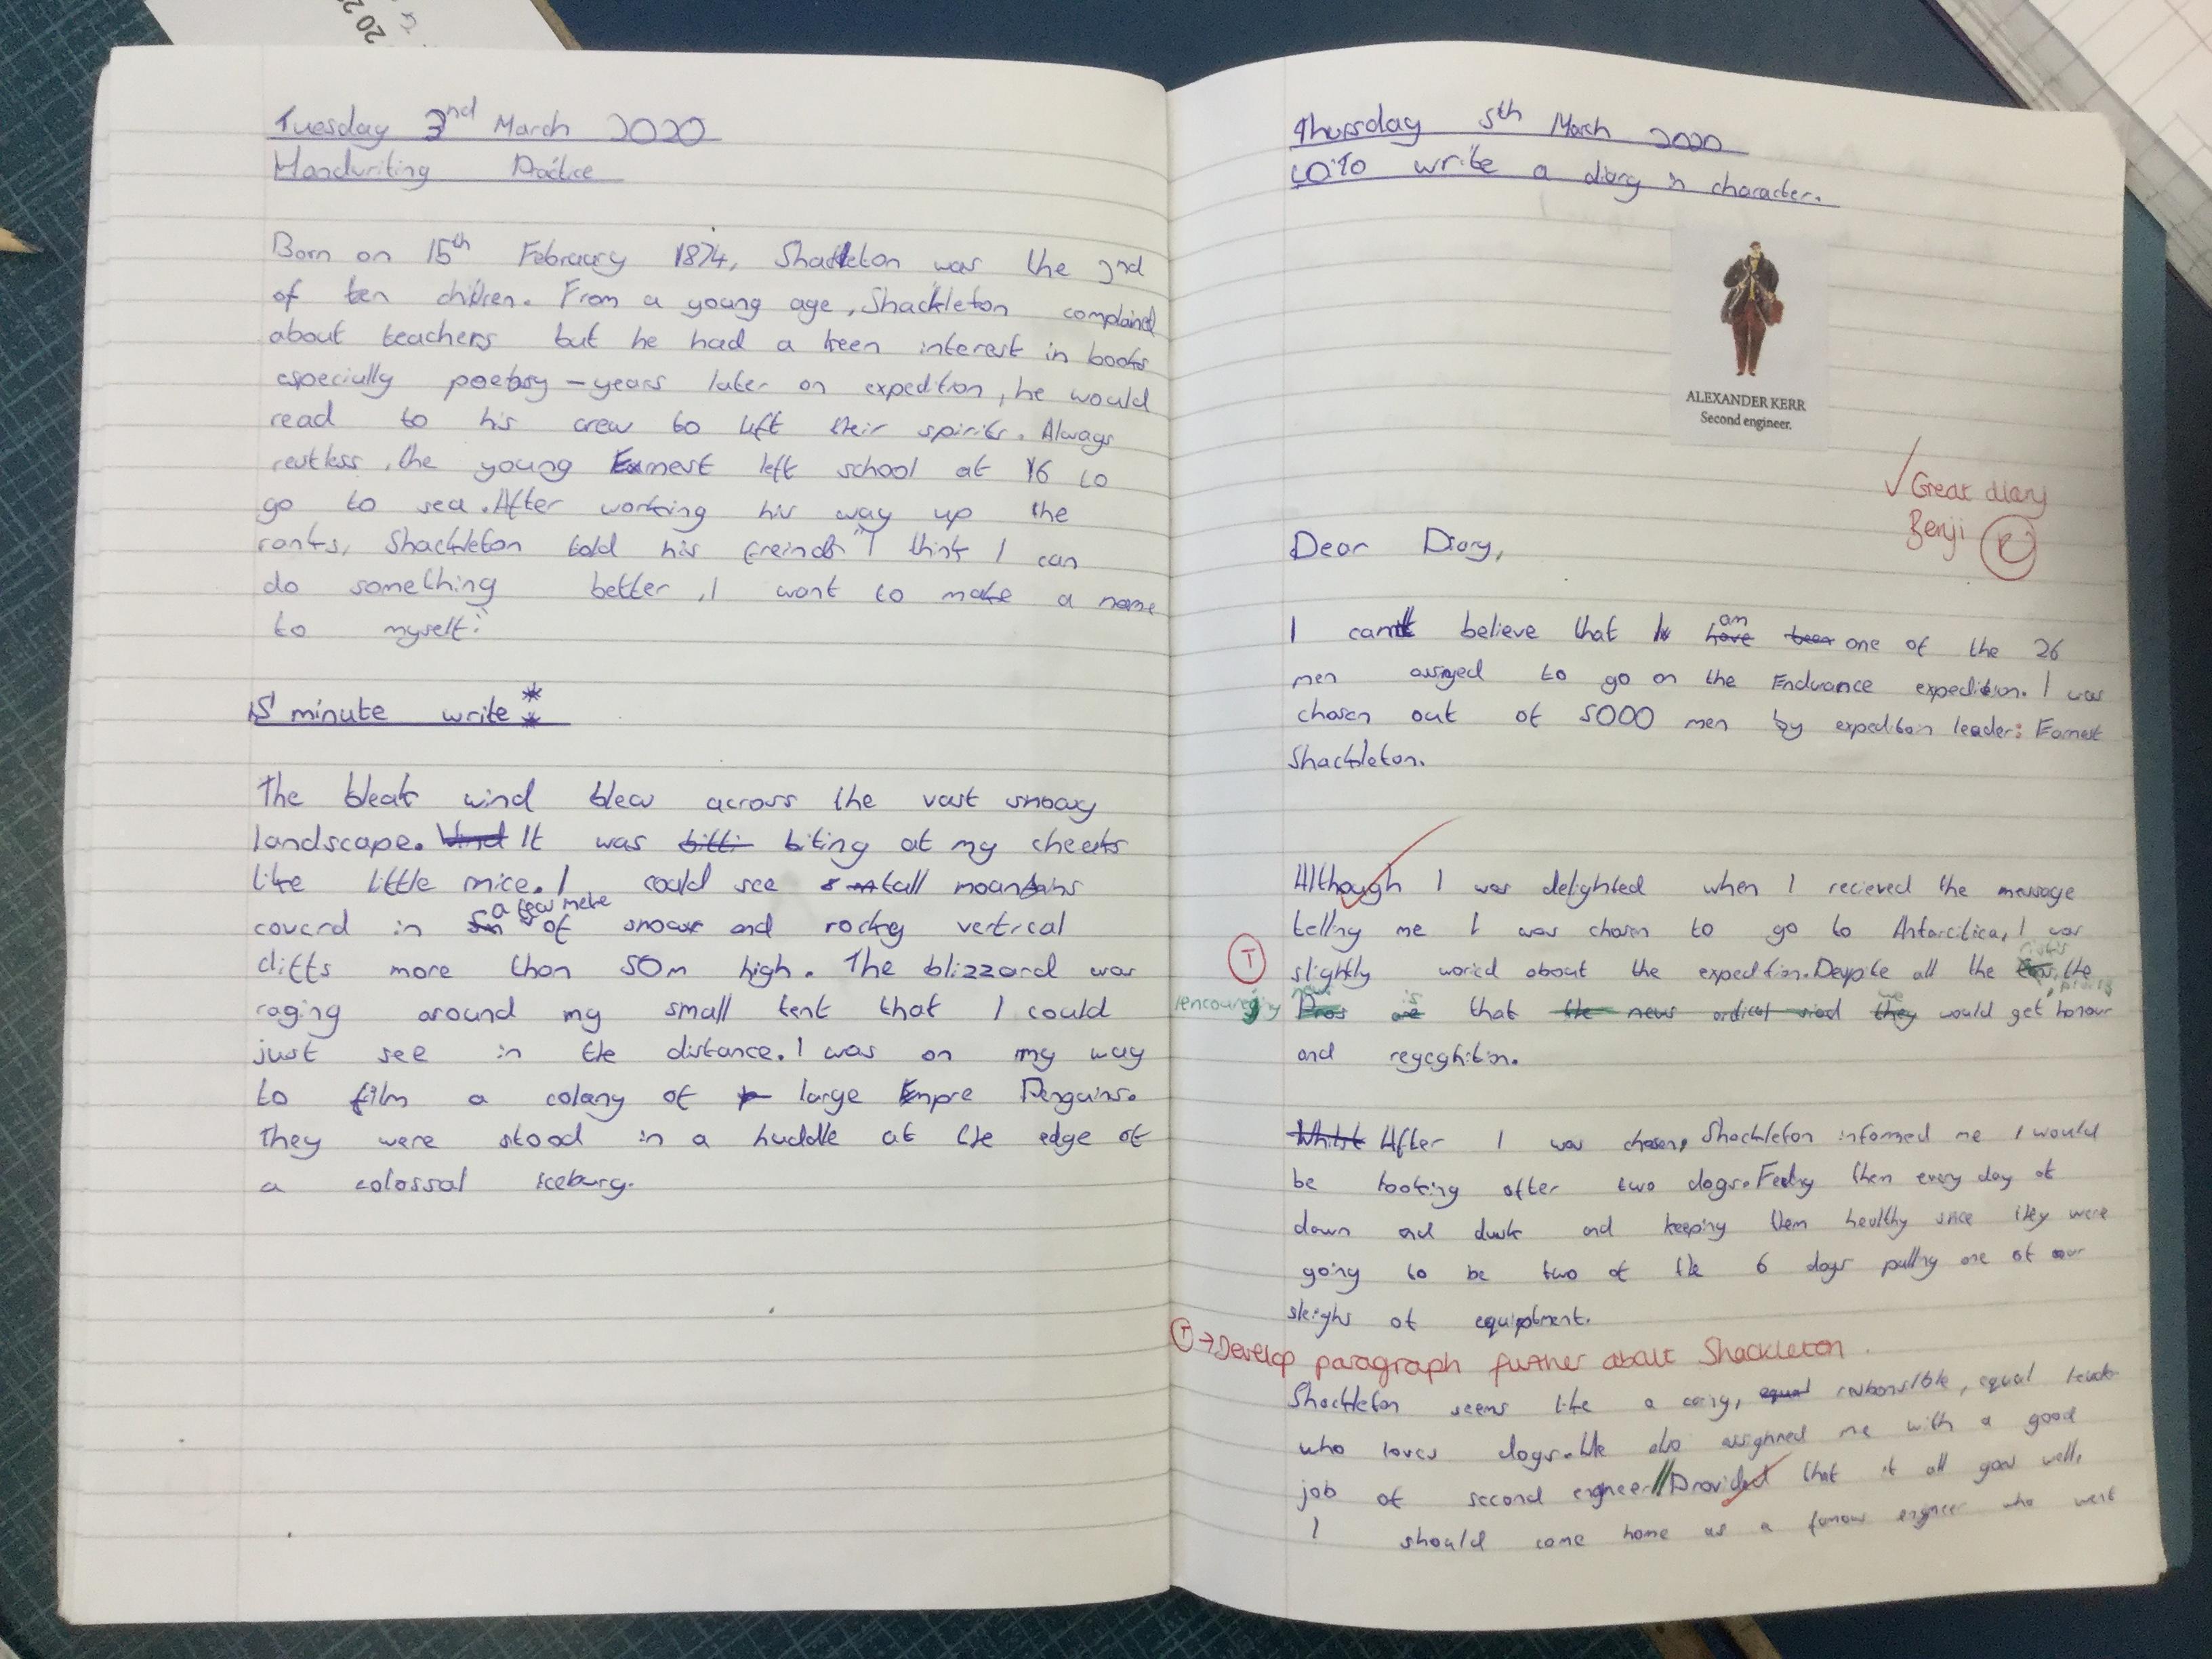 20 2
Tuesday 3nd March 2020
Handwriting Practice
Born on 15th February 1874, Shackleton was the 2nd
of ten children. From a young age, Shackleton complained
about teachers but he had a keen interest in books
especially poetry – years later on expedition, he would
read to his crew to lift their spirits. Always
restless, the young Earnest left school at 16 to
go to sea. After working his way up the
ranks, Shackleton told his freinds "I think I can
do something better, I want to make a name
to myself."
15 minute write**
The bleak wind blew across the vast snowy
landscape. Wind It was bitti biting at my cheeks
like little mice. I could see tall mountains
coverd in Sn a few metre of snow and rockey vertical
cliffs more than 50m high. The blizzard was
raging around my small tent that I could
just see in the distance. I was on my way
to film a colany of large Empre Penguins.
They were stood in a huddle at the edge of
a colossal iceburg.
Thursday 5th March 2020
LO:To write a diary in character.
ALEXANDER KERR
Second engineer.
✓ Great diary
Benji
Dear Diary,
I can't believe that I have am been one of the 26
men assigned to go on the Endurance expedition. I was
chosen out of 5000 men by expedition leader: Earnest
Shackleton.
Although I was delighted when I recieved the message
telling me I was chosen to go to Antarcitica, I was
T slightly woried about the expedition. Despite all the cons risks, the
encoureging Pros news are is that the news ordical siad they we would get honour
and regcghition.
Whilst After I was chosen, Shackleton informed me I would
be looking after two dogs. Feeding them every day at
dawn and dusk and keeping them healthy since they were
going to be two of the 6 dogs pulling one of our
sleighs of equiptment.
T → Develop paragraph further about Shackleton.
Shackleton seems like a caring, equal resbonsible, equal leader
who loves dogs. He also assighned me with a good
job of second engineer // Provided that it all goes well,
I should come home as a famous engineer who went